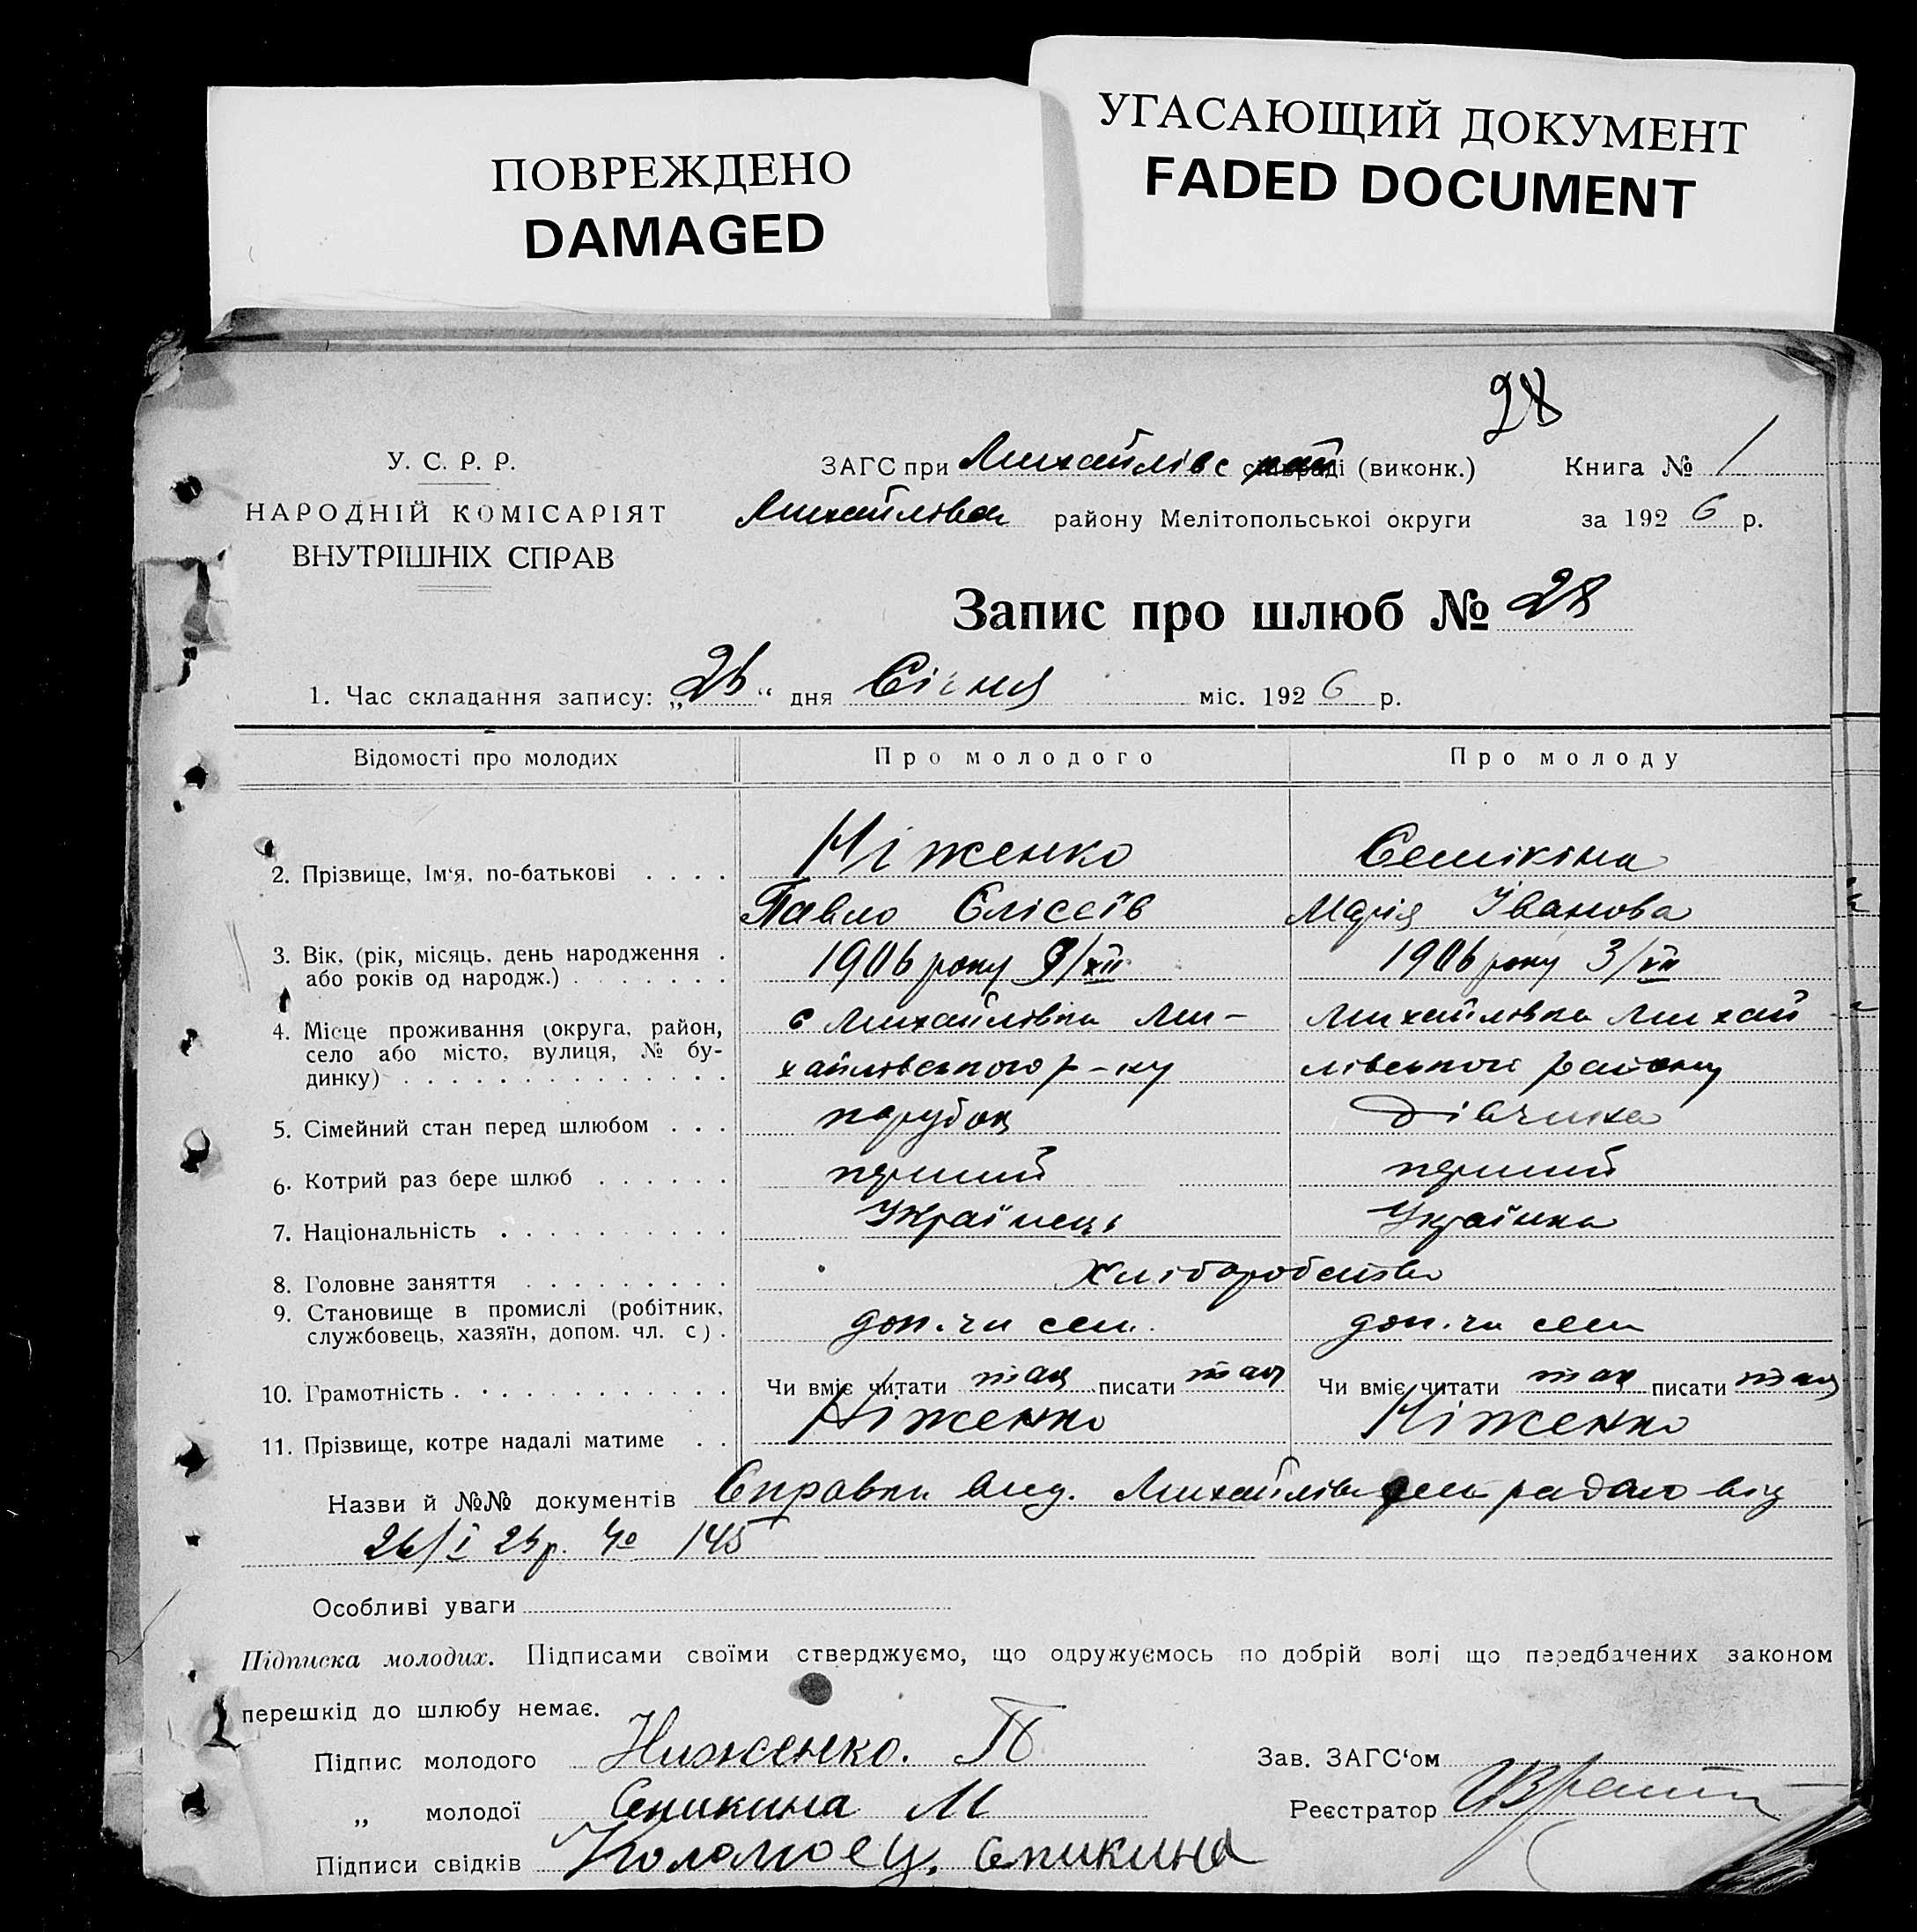 ПОВРЕЖДЕНО
DAMAGED
УГАСАЮЩИЙ ДОКУМЕНТ
FADED DOCUMENT
28
У. С. Р. Р.
НАРОДНІЙ КОМІСАРІЯТ
ВНУТРІШНІХ СПРАВ
ЗАГС при Михайлівс (виконк.) Книга № 1
району Мелітопольської округи за 1926 р.
Запис про шлюб № 28
1. Час складання запису: „26“ дня Січня міс. 1926 р.
Відомості про молодих Про молодого Про молоду
2. Прізвище, Ім‘я, по-батькові Ніженко Семікіна
Павло Єлісеїв Марія Іванова
3. Вік, (рік, місяць, день народження 1906 року 9/XII 1906 року 3/VII
або років од народж.)
4. Місце проживання (округа, район, с Михайлівка Ми- Михайлівка Михай
село або місто, вулиця, № бу- хайлівського р-ну лівського району
динку)
5. Сімейний стан перед шлюбом парубок дівчина
6. Котрий раз бере шлюб перший перший
7. Національність Українець Українка
8. Головне заняття Хліборобство
9. Становище в промислі (робітник,
службовець, хазяїн, допом. чл. с) доп. чл сем. доп. чл сем
10. Грамотність Чи вміє читати так писати так Чи вміє читати так писати так
11. Прізвище, котре надалі матиме Ніженко Ніженко
Назви й №№ документів Справки вид. Михайлів радою від
26/I 26 р. № 145
Особливі уваги
Підписка молодих. Підписами своїми стверджуємо, що одружуємось по добрій волі що передбачених законом
перешкід до шлюбу немає.
Підпис молодого Ниженко. П Зав. ЗАГС‘ом
„ молодої Семикина М Реєстратор
Підписи свідків Коломоец, Семикина